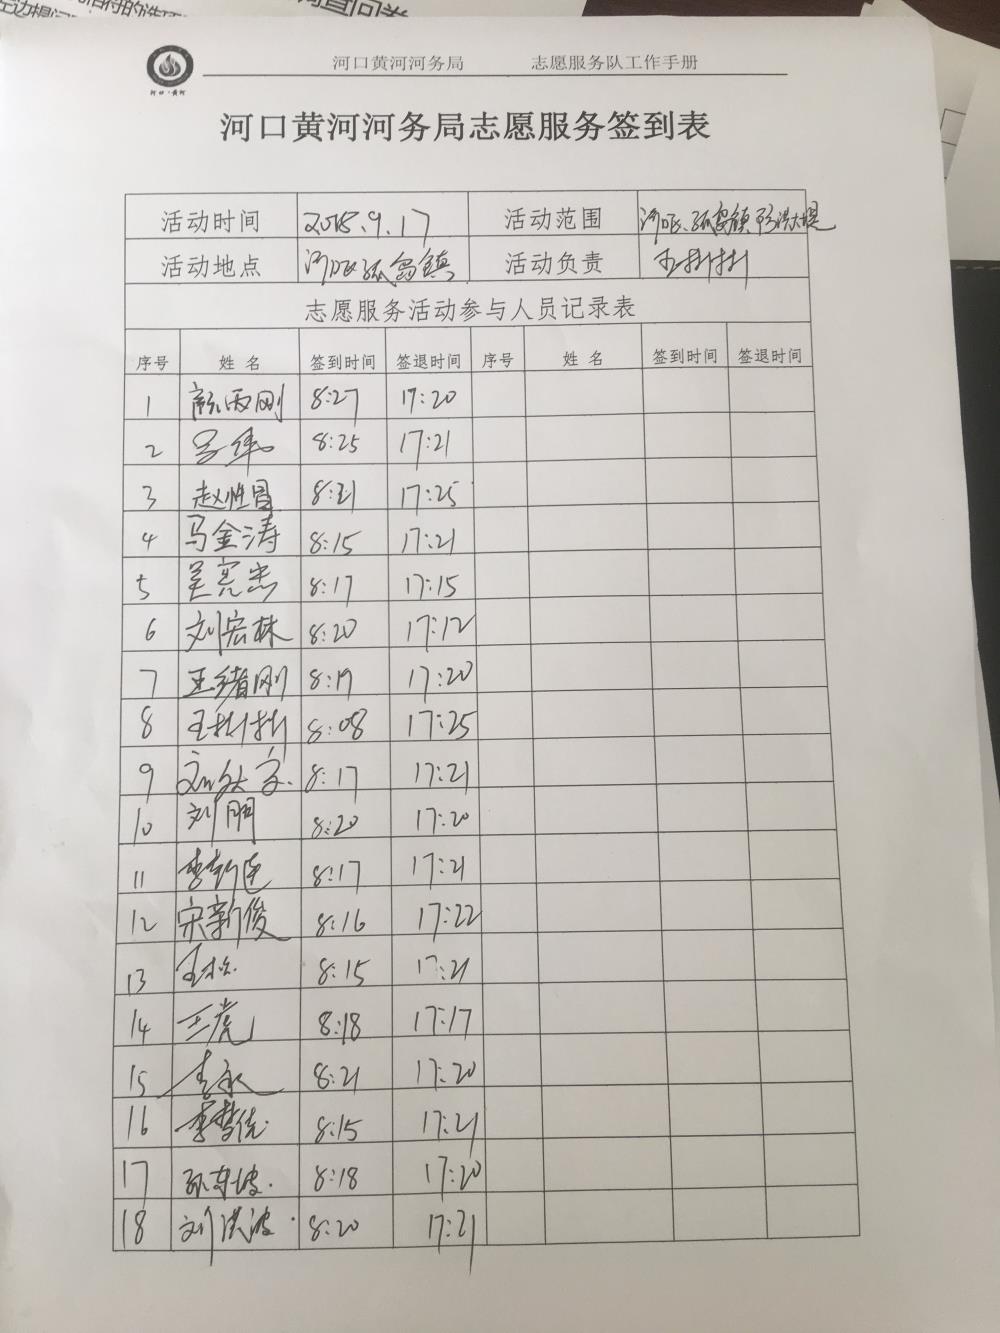 河口黄河河务局 志愿服务队工作手册
河口·黄河
河口黄河河务局志愿服务签到表
活动时间 2018.9.17 活动范围 河口区孤岛镇防洪大堤
活动地点 河口区孤岛镇 活动负责
志愿服务活动参与人员记录表
序号 姓名 签到时间 签退时间 序号 姓名 签到时间 签退时间
1 8:27 17:20
2 吕伟 8:25 17:21
3 8:21 17:25
4 马金涛 8:15 17:21
5 吴宪忠 8:17 17:15
6 刘宏林 8:20 17:12
7 王绪刚 8:19 17:20
8 8:08 17:25
9 8:17 17:21
10 刘朋 8:20 17:20
11 8:17 17:21
12 宋新俊 8:16 17:22
13 王松 8:15 17:21
14 王虎 8:18 17:17
15 李永 8:21 17:20
16 8:15 17:21
17 孙东坡 8:18 17:20
18 刘洪波 8:20 17:21